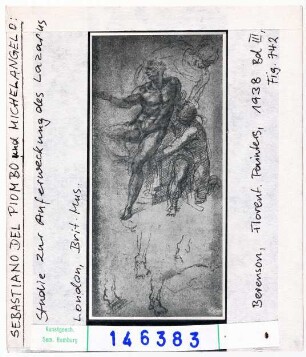 SEBASTIANO DEL PIOMBO und MICHELANGELO:
Studie zur Auferweckung des Lazarus
London, Brit. Mus.
Berenson, Florent. Painters, 1938 Bd III,
Fig. 742
Kunstgesch.
Sem. Hamburg
146383